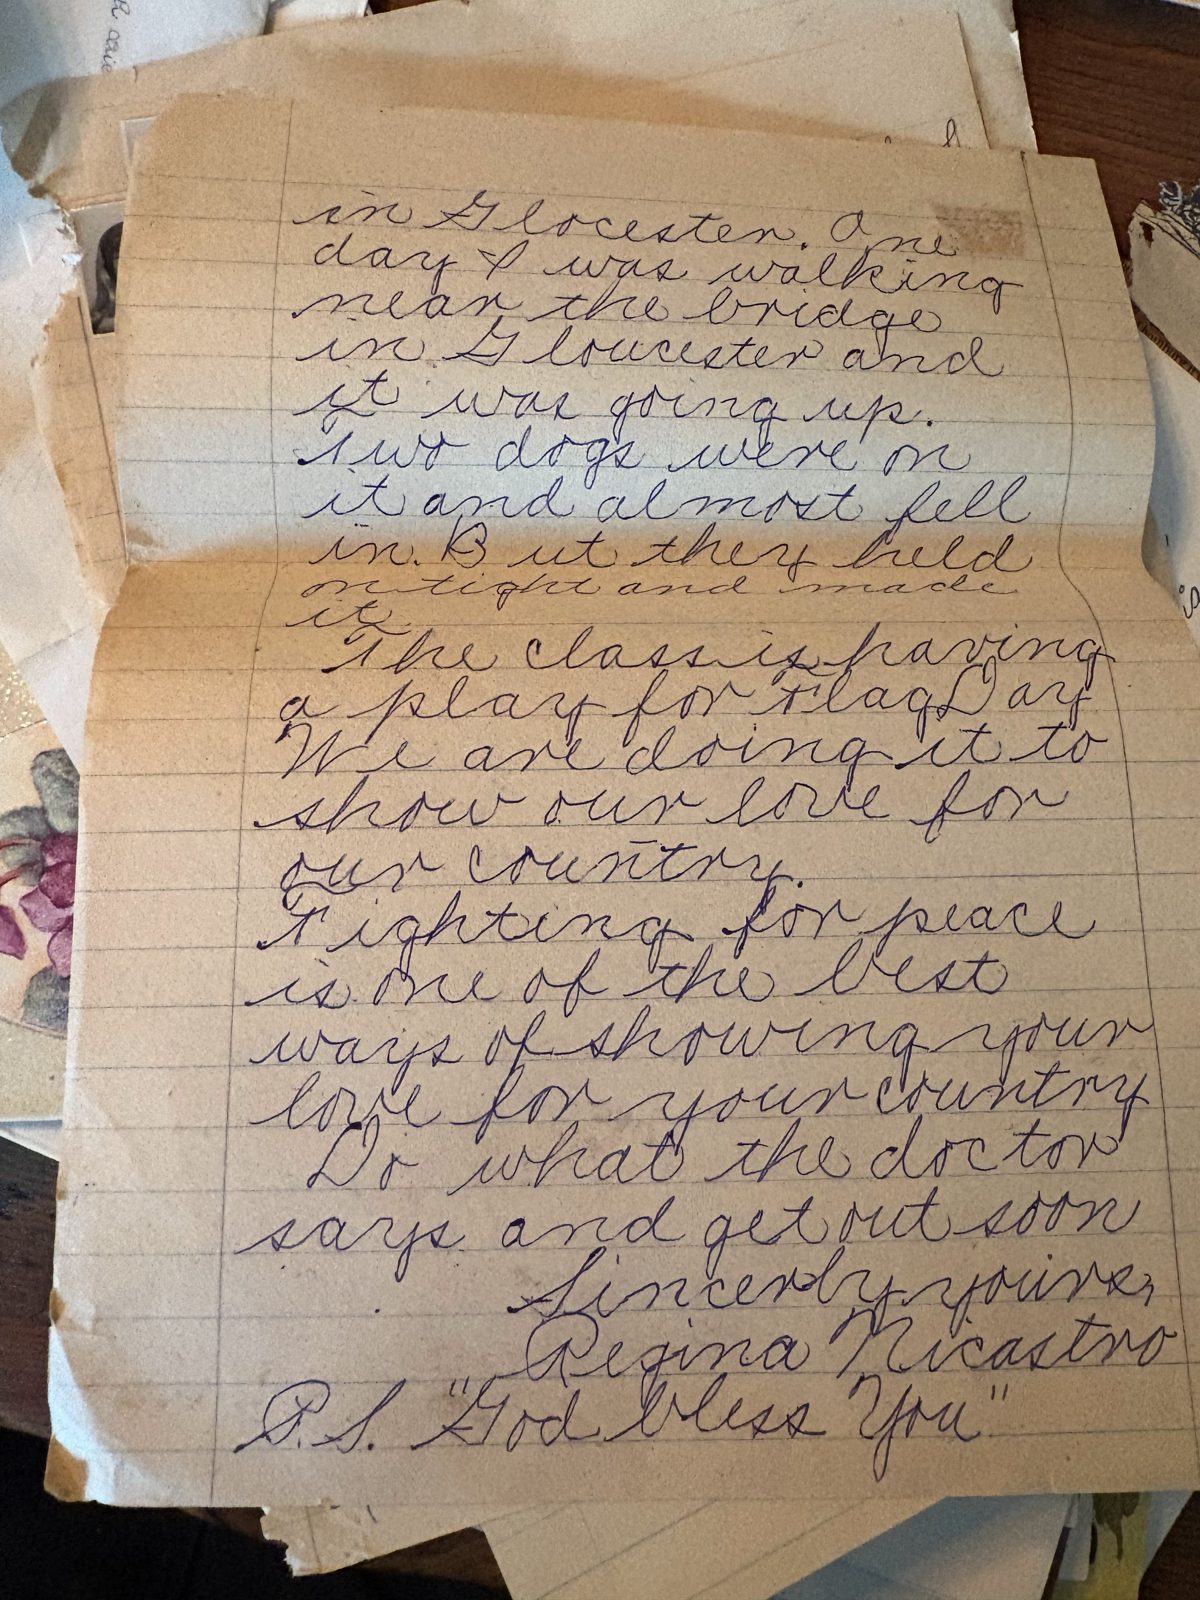 in Glocester. One
day I was walking
near the bridge
in Gloucester and
it was going up.
Two dogs were on
it and almost fell
in. But they held
on tight and made
it
The class is having
a play for Flag Day
We are doing it to
show our love for
our country.
Fighting for peace
is one of the best
ways of showing your
love for your country
Do what the doctor
says and get out soon
Sincerly yours,
Regina Nicastro
P.S. "God bless You"